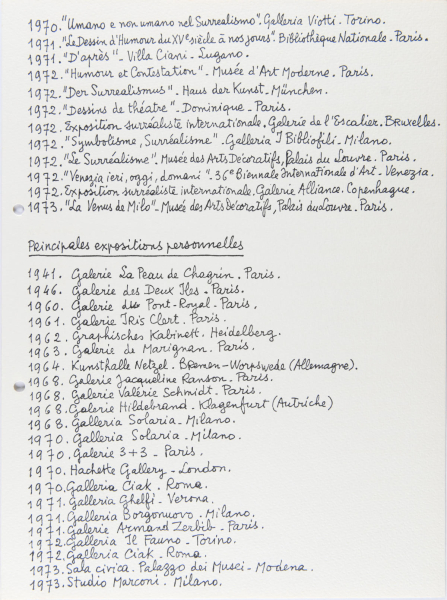 1970. "Umano e non umano nel Surrealismo". Galleria Viotti. Torino.
1971. "Le Dessin d'Humour du XVe siècle à nos jours". Bibliothèque Nationale. Paris.
1971. "D'après" - Villa Ciani - Lugano.
1972. "Humour et Contestation" - Musée d'Art Moderne. Paris.
1972. "Der Surrealismus". Haus der Kunst. München.
1972. "Dessins de théatre". Dominique - Paris.
1972. Exposition surréaliste internationale. Galerie de l'Escalier. Bruxelles.
1972. "Symbolisme, Surréalisme" - Galleria I Bibliofili - Milano.
1972. "Le Surréalisme". Musée des Arts Décoratifs, Palais du Louvre. Paris.
1972. "Venezia ieri, oggi, domani". 36e Biennale Internationale d'Art - Venezia.
1972. Exposition surréaliste internationale. Galerie Alliance. Copenhague.
1973. "La Venus de Milo" - Musée des Arts Décoratifs, Palais du Louvre. Paris.
Principales expositions personnelles
1941. Galerie La Peau de Chagrin. Paris.
1946. Galerie des Deux Iles. Paris.
1960. Galerie du Pont-Royal. Paris.
1961. Galerie Iris Clert. Paris.
1962. Graphisches Kabinett. Heidelberg.
1963. Galerie de Marignan. Paris.
1964. Kunsthalle Netzel. Bremen-Worpswede (Allemagne).
1968. Galerie Jacqueline Ranson. Paris.
1968. Galerie Valérie Schmidt. Paris.
1968. Galerie Hildebrand. Klagenfurt (Autriche)
1968. Galleria Solaria - Milano.
1970. Galleria Solaria - Milano.
1970. Galerie 3+3 - Paris.
1970. Hachette Gallery - London.
1970. Galleria Ciak. Roma.
1971. Galleria Ghelfi - Verona.
1971. Galleria Borgonuovo - Milano.
1971. Galerie Armand Zerbib - Paris.
1972. Galleria Il Fauno - Torino.
1972. Galleria Ciak - Roma.
1973. Sala civica. Palazzo dei Musei - Modena.
1973. Studio Marconi. Milano.